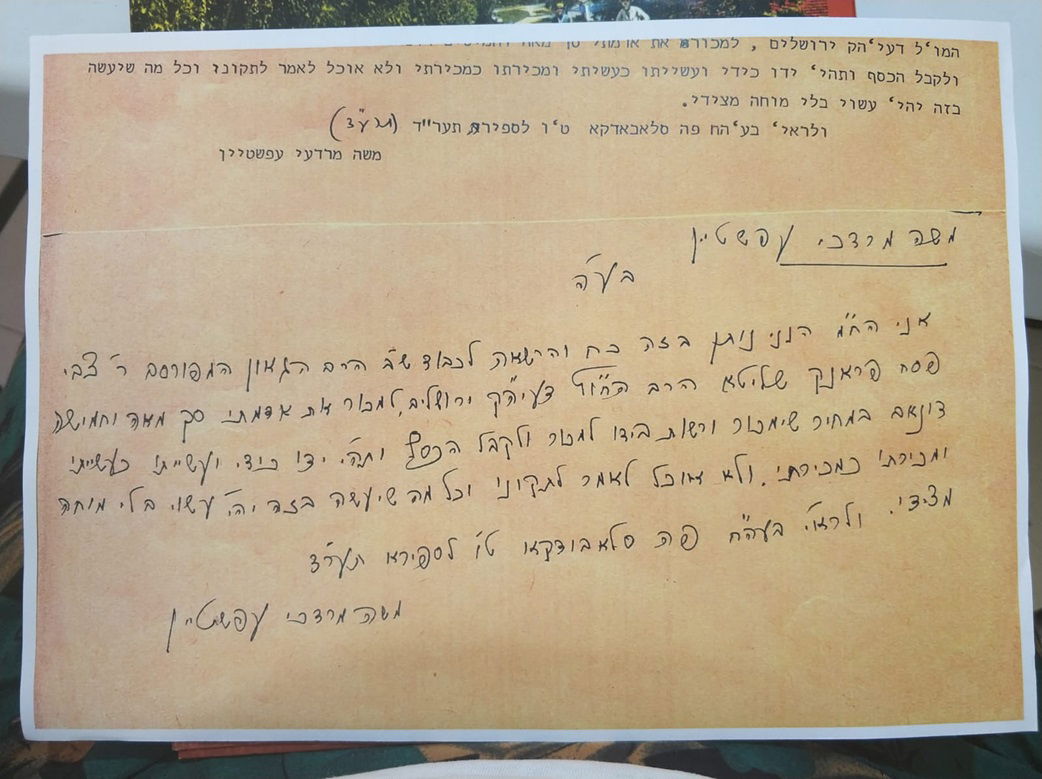 המו״ל דעי׳הק ירושלים , למכור את אדמתי סך מאה וחמישים
ולקבל הכסף ותהי׳ ידו כידי ועשייתו כעשיתי ומכירתו כמכירתי ולא אוכל לאמר לתקוני וכל מה שיעשה
בזה יהי׳ עשוי בלי מוחה מצידי.
ולראי׳ בע׳הח פה סלאבאדקא ט׳ו לספירת תער״ד (תע״ד)
משה מרדעי עפשטיין
משה מרדכי עפשטיין
בע״ה
אני הח״מ הנני נותן בזה כח והרשאה לכבוד ש״ב הרב הגאון המפורסם ר׳ צבי
פסח פראנק שליטא הרב דעיה״ק ירושלים, למכור את אדמתי סך מאה וחמישה
דונאם במחיר שימכור ורשות בידו למכור ולקבל הכסף ותהי׳ ידו כידי ועשייתו כעשייתי
ומכירתו כמכירתי. ולא אוכל לאמר לתקוני וכל מה שיעשה בזה יהי׳ עשוי בלי מוחה
מצידי. ולראי׳ בעה״ח פה סלאבודקא ט״ו לספירא תער״ד
משה מרדכי עפשטיין